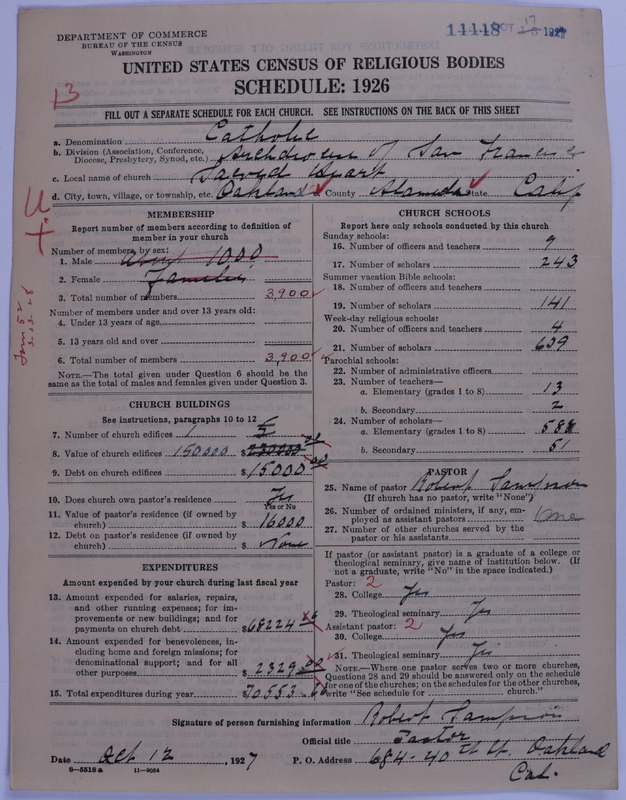 DEPARTMENT OF COMMERCE
BUREAU OF THE CENSUS
WASHINGTON
14448 OCT 17 1927
UNITED STATES CENSUS OF RELIGIOUS BODIES
SCHEDULE: 1926
13
FILL OUT A SEPARATE SCHEDULE FOR EACH CHURCH. SEE INSTRUCTIONS ON THE BACK OF THIS SHEET
a. Denomination Catholic
b. Division (Association, Conference, Diocese, Presbytery, Synod, etc.) Archdiocese of San Francisco
c. Local name of church Sacred Heart
d. City, town, village, or township, etc. Oakland County Alameda State Calif
MEMBERSHIP
Report number of members according to definition of member in your church
Number of members, by sex:
1. Male about 1000
2. Female Families
3. Total number of members 3,900
Number of members under and over 13 years old:
4. Under 13 years of age
5. 13 years old and over
6. Total number of members 3,900
NOTE.—The total given under Question 6 should be the same as the total of males and females given under Question 3.
Form 52
CHURCH BUILDINGS
See instructions, paragraphs 10 to 12
7. Number of church edifices 1
8. Value of church edifices 150000 $ 250000
9. Debt on church edifices $ 15000 00
10. Does church own pastor's residence Yes
Yes or No
11. Value of pastor's residence (if owned by church) $ 16000
12. Debt on pastor's residence (if owned by church) $ None
EXPENDITURES
Amount expended by your church during last fiscal year
13. Amount expended for salaries, repairs, and other running expenses; for improvements or new buildings; and for payments on church debt $ 68224
14. Amount expended for benevolences, including home and foreign missions; for denominational support; and for all other purposes $ 2329
15. Total expenditures during year $ 70553
CHURCH SCHOOLS
Report here only schools conducted by this church
Sunday schools:
16. Number of officers and teachers 9
17. Number of scholars 243
Summer vacation Bible schools:
18. Number of officers and teachers
19. Number of scholars 141
Week-day religious schools:
20. Number of officers and teachers 4
21. Number of scholars 639
Parochial schools:
22. Number of administrative officers
23. Number of teachers—
a. Elementary (grades 1 to 8) 13
b. Secondary 2
24. Number of scholars—
a. Elementary (grades 1 to 8) 588
b. Secondary 51
PASTOR
25. Name of pastor Robert Sampson
(If church has no pastor, write "None")
26. Number of ordained ministers, if any, employed as assistant pastors
27. Number of other churches served by the pastor or his assistants
If pastor (or assistant pastor) is a graduate of a college or theological seminary, give name of institution below. (If not a graduate, write "No" in the space indicated.)
Pastor: 2
28. College Yes
29. Theological seminary Yes
Assistant pastor: 2
30. College Yes
31. Theological seminary Yes
NOTE.—Where one pastor serves two or more churches, Questions 28 and 29 should be answered only on the schedule for one of the churches; on the schedules for the other churches, write "See schedule for church."
Signature of person furnishing information Robert Sampson
Official title Pastor
Date Oct 12, 1927 P. O. Address 684-40th St. Oakland
Cal.
8—5518 a 11—9054